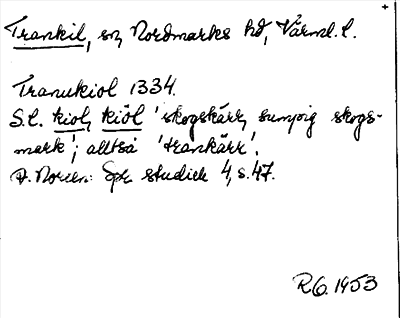 Trankil, sn, Nordmarks hd, Värml. l.
Tranukiol 1334.
S.l. kiol, kiöl 'skogskärr, sumpig skogs-
mark'; alltså 'trankärr'.
A. Noreen: Spr. studier 4, s. 47.
RG. 1953